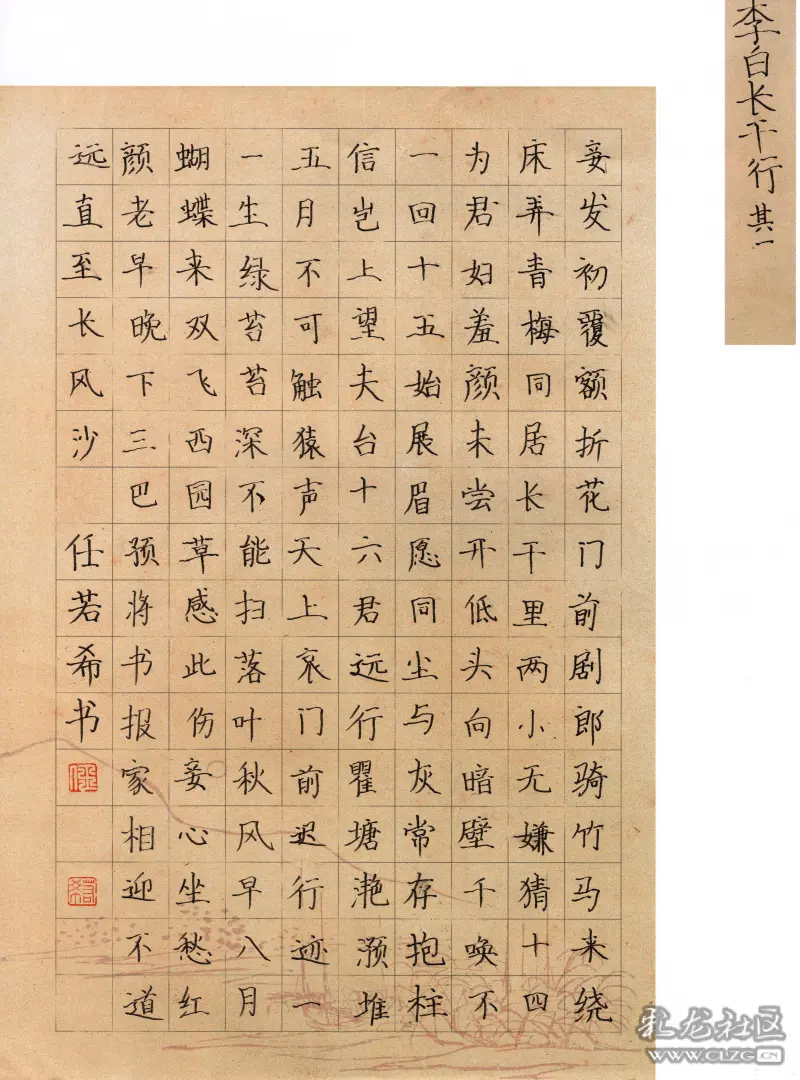 李白长干行 其一
妾发初覆额折花门前剧郎骑竹马来绕
床弄青梅同居长干里两小无嫌猜十四
为君妇羞颜未尝开低头向暗壁千唤不
一回十五始展眉愿同尘与灰常存抱柱
信岂上望夫台十六君远行瞿塘滟滪堆
五月不可触猿声天上哀门前迟行迹一
一生绿苔苔深不能扫落叶秋风早八月
蝴蝶来双飞西园草感此伤妾心坐愁红
颜老早晚下三巴预将书报家相迎不道
远直至长风沙 任若希书
彩龙社区
www.clzg.cn